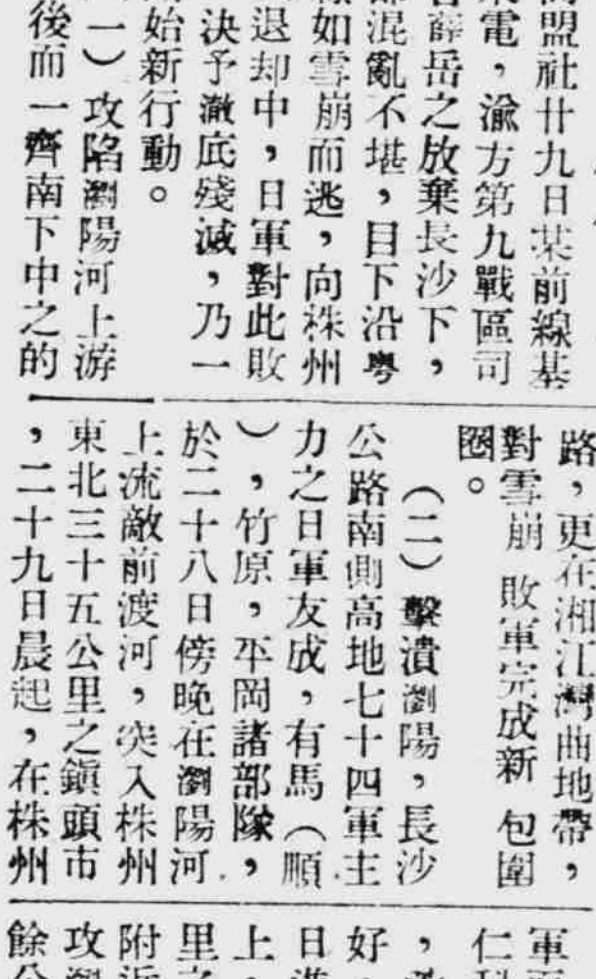 盟社廿九日某前線基
電，渝方第九戰區司
薛岳之放棄長沙下，
混亂不堪，目下沿粵
如雪崩而逃，向株州
退却中，日軍對此敗
決予澈底殘滅，乃一
始新行動。
一）攻陷瀏陽河上游
後而一齊南下中之的
路，更在湘江灣曲地帶，
對雪崩敗軍完成新包圍
圈。
（二）擊潰瀏陽，長沙
公路南側高地七十四軍主
力之日軍友成，有馬（順
），竹原，平岡諸部隊，
於二十八日傍晚在瀏陽河
上流敵前渡河，突入株州
東北三十五公里之鎮頭市
，二十九日晨起，在株州
軍
仁
，
好
日
上
里
附
攻
餘